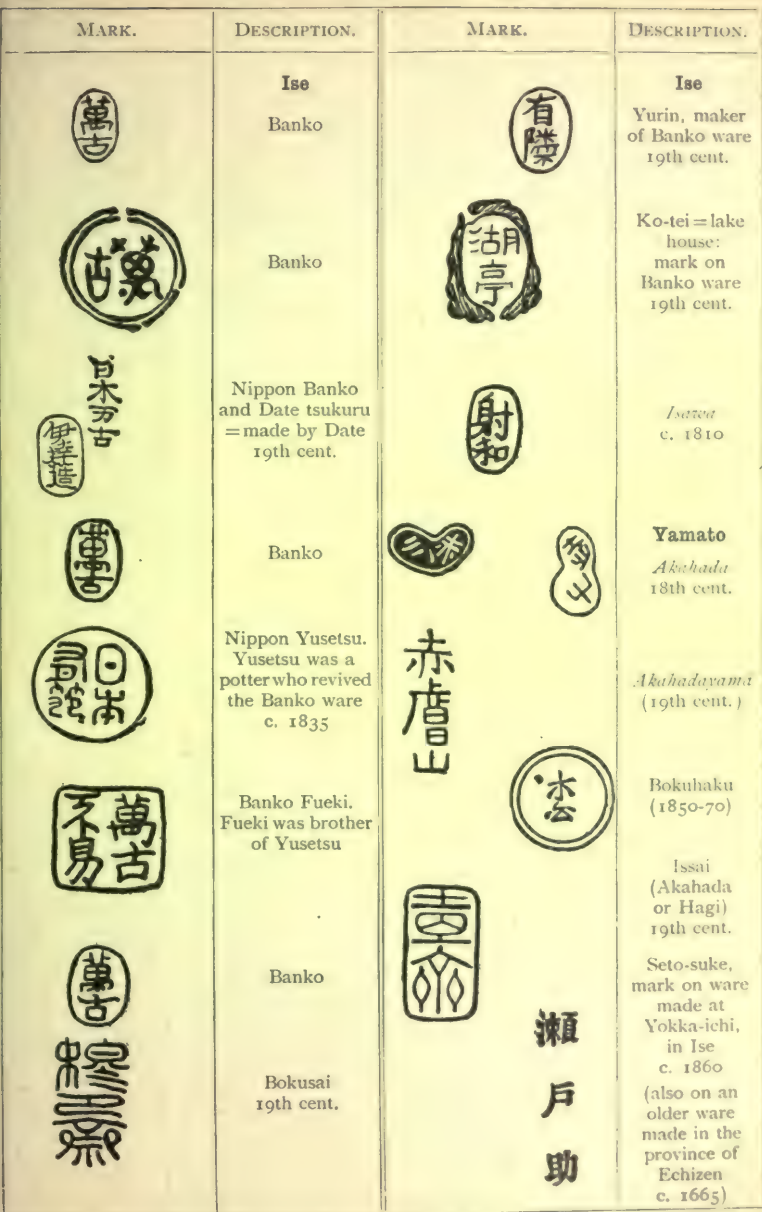 MARK.
DESCRIPTION.
萬古
Ise
Banko
Banko
日本万古
伊達造
Nippon Banko
and Date tsukuru
=made by Date
19th cent.
萬古
Banko
日本
有節
Nippon Yusetsu.
Yusetsu was a
potter who revived
the Banko ware
c. 1835
萬古
不易
Banko Fueki.
Fueki was brother
of Yusetsu
萬古
Banko
Bokusai
19th cent.
MARK.
DESCRIPTION.
有隣
Ise
Yurin, maker
of Banko ware
19th cent.
湖亭
Ko-tei = lake
house:
mark on
Banko ware
19th cent.
射和
Isawa
c. 1810
Yamato
Akahada
18th cent.
赤膚山
Akahadayama
(19th cent.)
Bokuhaku
(1850-70)
Issai
(Akahada
or Hagi)
19th cent.
瀬戸助
Seto-suke,
mark on ware
made at
Yokka-ichi,
in Ise
c. 1860
(also on an
older ware
made in the
province of
Echizen
c. 1665)